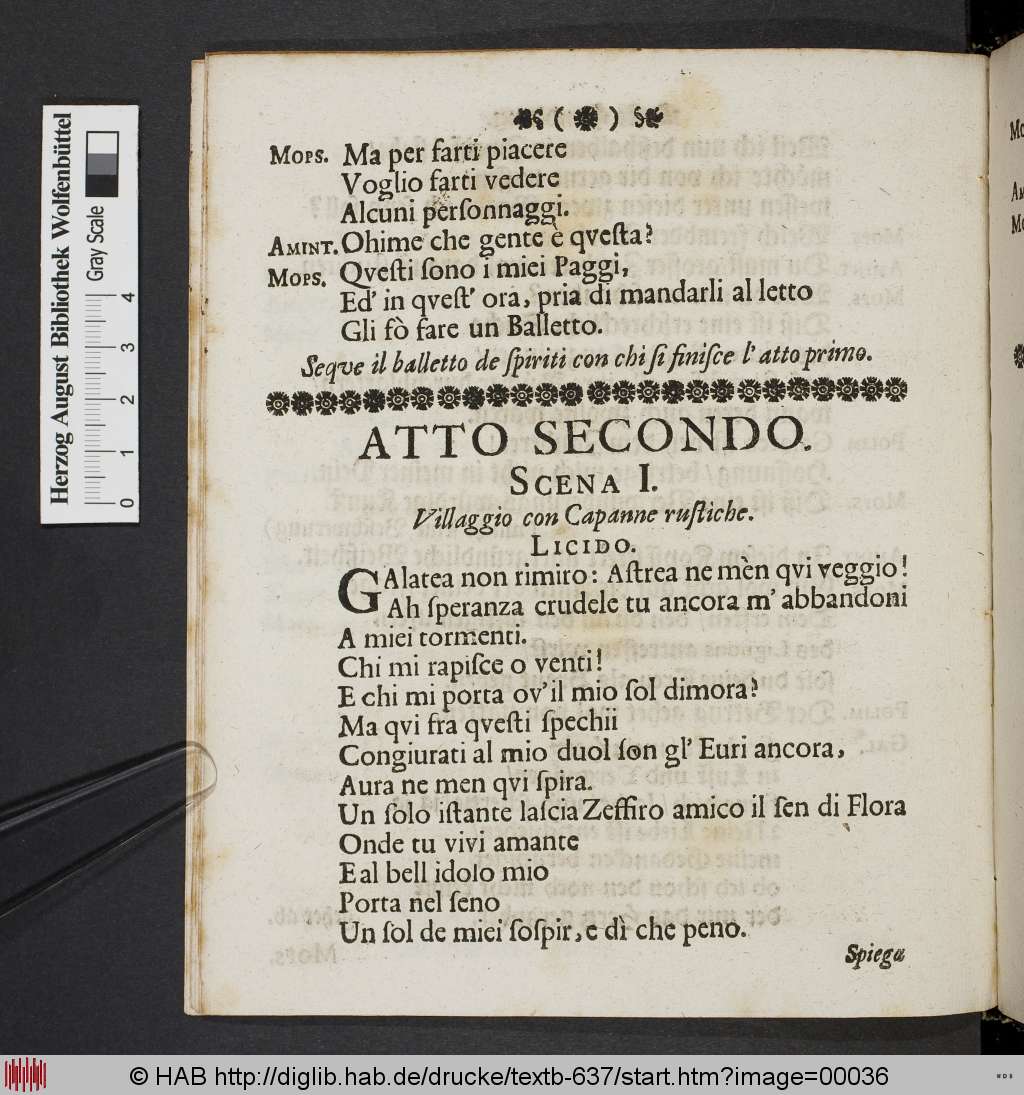 Mops. Ma per farti piacere
Voglio farti vedere
Alcuni perſonnaggi.
Amint. Ohime che gente è qveſta?
Mops. Qveſti ſono i miei Paggi,
Ed' in qveſt' ora, pria di mandarli al letto
Gli fò fare un Balletto.
Seqve il balletto de ſpiriti con chi ſi finiſce l'atto primo.
ATTO SECONDO.
Scena I.
Villaggio con Capanne ruſtiche.
Licido.
GAlatea non rimiro: Aſtrea ne mèn qvi veggio!
Ah ſperanza crudele tu ancora m' abbandoni
A miei tormenti.
Chi mi rapiſce o venti!
E chi mi porta ov'il mio ſol dimora?
Ma qvi fra qveſti ſpechii
Congiurati al mio duol ſon gl' Euri ancora,
Aura ne men qvi ſpira.
Un ſolo iſtante laſcia Zeffiro amico il ſen di Flora
Onde tu vivi amante
E al bell idolo mio
Porta nel ſeno
Un ſol de miei ſoſpir, e dì che peno.
Spiega
Herzog August Bibliothek Wolfenbüttel
Gray Scale
0 1 2 3 4
© HAB http://diglib.hab.de/drucke/textb-637/start.htm?image=00036